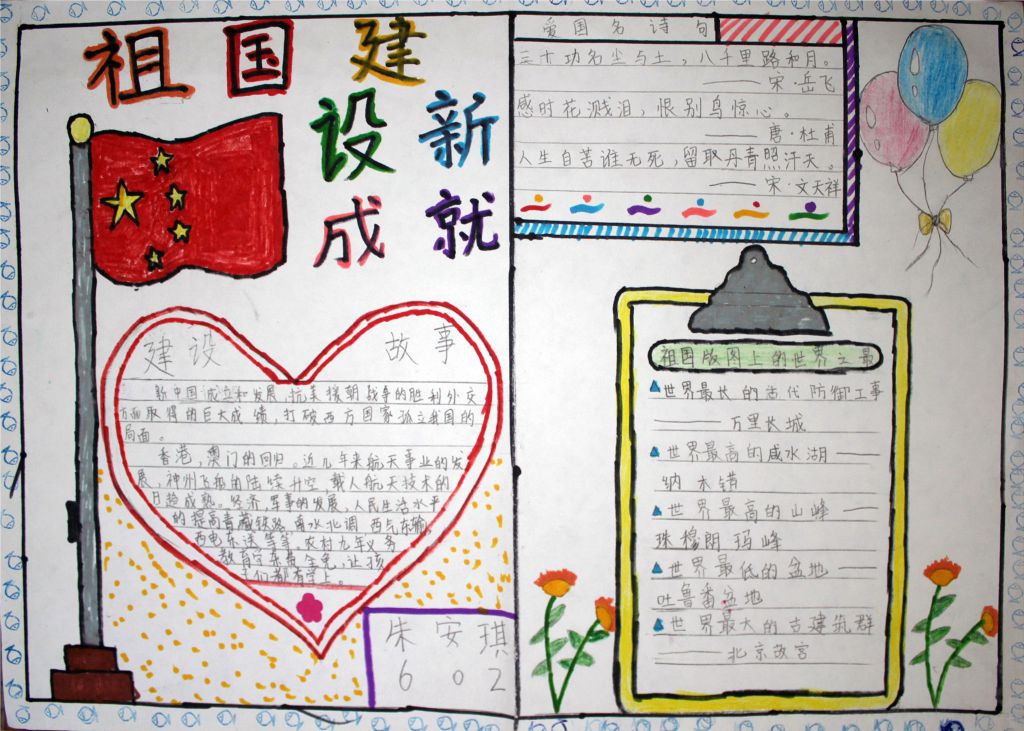 祖国建
设新
成就
建设 故事
新中国诚立和发展,抗美援朝战争的胜利外交
方面取得的巨大成绩,打破西方国家孤立我国的
局面。
香港,澳门的回归。近几年来航天事业的发
展,神州飞船的陆续升空 载人航天技术的
日趋成熟。经济,军事的发展,人民生活水平
的提高青藏铁路,南水北调 西气东输,
西电东送等等。农村九年义务
教育学杂费全免,让孩
们都有学上。
朱安琪
602
爱国名诗句
三十功名尘与土,八千里路和月。
——宋·岳飞
感时花溅泪,恨别鸟惊心。
——唐·杜甫
人生自苦谁无死,留取丹青照汗天。
——宋·文天祥
祖国版图上的世界之最
世界最长的古代防御工事
——万里长城
世界最高的咸水湖——
纳木错
世界最高的山峰——
珠穆朗玛峰
世界最低的盆地——
吐鲁番盆地
世界最大的古建筑群
——北京故宫